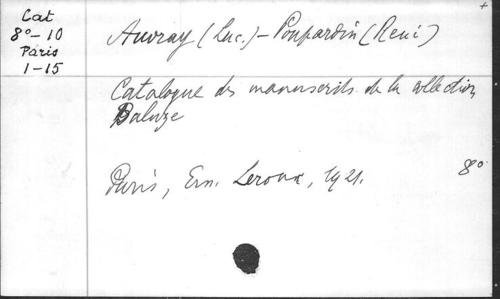 Cat
8º-10
Paris
1-15
+
Auvray (Luc.) - Poupardin (René)
Catalogue des manuscrits de la collection
Baluze
Paris, Ern. Leroux, 1921. 8º